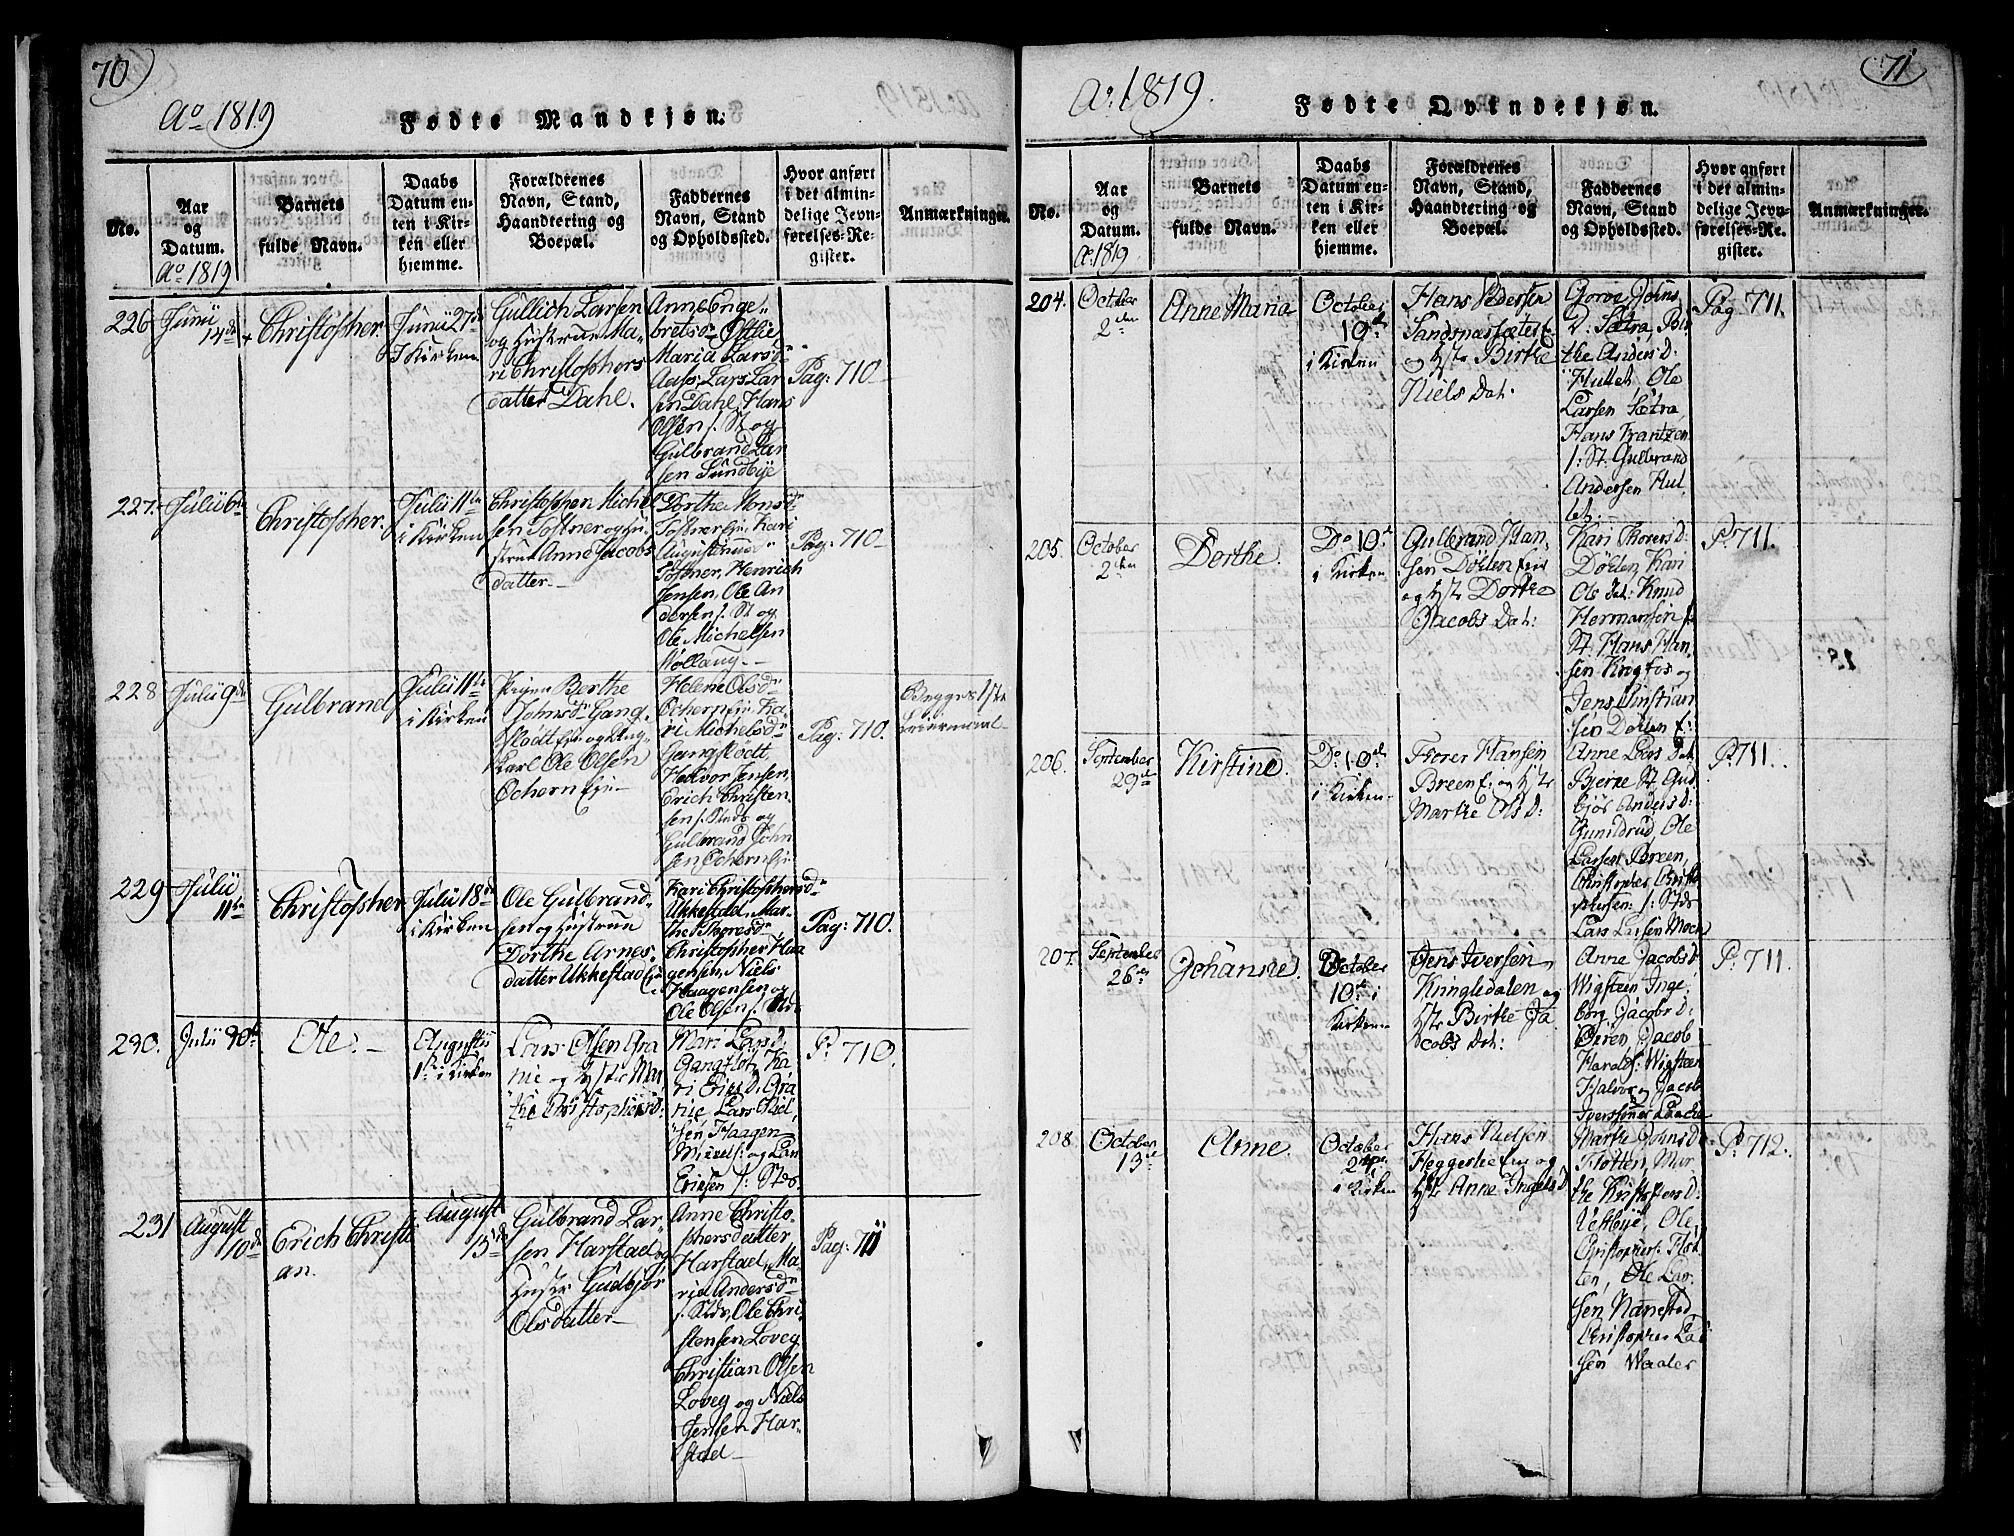 70
Ao 1819
Fødte Mandkjøn.
No.
Aar
og
Datum.
Ao 1819
Barnets
fulde Navn.
Daabs
Datum en-
ten i Kir-
ken eller
hjemme.
Forældrenes
Navn, Stand,
Haandtering og
Boepæl.
Faddernes
Navn, Stand
og Opholdssted.
Hvor anført
i det almin-
delige Jevn-
førelses-Re-
gister.
Anmærkninger.
226
Junii
14de
Christopher
Junii 27de
I Kirken
Gullich Larsen
og Hustrue Ma-
ri Christophers
datter Dahl.
Anne Enge-
bretsdr
Maria Larsdr
Aass, Lars Lar-
sen Dahl, Hans
Olsen s. St og
Gulbrand Lar
sen Sundbye
Pag: 710
227.
Julii 6te
Christopher.
Julii 11te
i Kirken
Christopher Michel
sen Tostner og Hu-
strue Anne Jacobs
datter
Dorthe Monsdr
Tostner Kari
Tostner, Henrich
Jensen, Ole An
dersen s. St og
Ole Michelsen
Hollaug.
Pag: 710
228
Julii 9de
Gulbrand
Julii 11te
i Kirken
Pigen Berthe
Johnsdr Gang-
flødt Eie og Ung-
karl Ole Olsen
Ochern Eje
Helene Olsdr
Ochern Eje Ka-
ri Michelsdr
Gangflødt,
Halvor Jensen,
Erich Christen
sen s. Steds og
Gulbrand John
sen Ochern Eje
Pag: 710.
Begges 1ste
Leiermaal
229
Julii
11te
Christopher
Julii 18de
i Kirken
Ole Gulbrand-
sen og Hustrue
Dorthe Arnes-
datter Ukkestad Eje
Kari Christophersdr
Ukkestad, Mar-
the Thoresdr
Christopher Haa
gensen, Niels
Haagensen og
Ole Olsen s. Stds
Pag: 710.
230.
Julii 30te
Ole.
Augustii
1ste i Kirken
Lars Olsen Gra
nie og Hstr Mar
the Christophersd:
Mari Larsd:
Gangflöt, Ka
ri Eriksd: Gra
nie, Lars Niel
sen, Haagen
Mikkels: og Lars
Eriksen s: Stds.
P: 710.
231
August
10de
Erich Christi
an.
August
15de
Gulbrand Lar-
sen Harstad og
Hustr Gudbjør
Olsdatter
Anne Christo-
phersdatter
Harstad, Ma-
ria Andersdr
s. Stds, Ole Chri
stensen Loveg
Christian Olsen
Loveg og Niels
Jensen Har-
stad
Pag: 711
71
Ao 1819.
Fødte Qvindekjøn.
No.
Aar
og
Datum.
Ao 1819.
Barnets
fulde Navn.
Daabs
Datum en-
ten i Kir-
ken eller
hjemme.
Forældrenes
Navn, Stand,
Haandtering og
Boepæl.
Faddernes
Navn, Stand
og Opholdssted.
Hvor anført
i det almin-
delige Jevn-
førelses-Re-
gister.
Anmærkninger.
204.
October
2den
Anne Maria
October
10de
i Kirken
Hans Pedersen
Sandsnarsæter E
og Hstr Birthe
Niels Dat:
Gorve Johns
D: Sætra, Bir
the Anders d:
Hullet, Ole
Larsen Sætra,
Hans Frantzen
s: St. Gulbrand
Andersen Hul
let.
Pag 711.
205.
October
2den
Dorthe.
Do 10de
i Kirken
Gulbrand Han-
sen Dörlen Eie
og Hstr Dorthe
Jacobs Dat:
Kari Thoresd:
Dörlen, Kari
Ols Dat: Knud
Hermansen s
St. Hans Han
sen Krogfos og
Jens Christian
sen Dörlen E:
P: 711.
206.
September
29de
Kirstine.
Do 10de
i Kirken
Torer Hansen
Breen E. og Hstr
Marthe Ols D:
Anne Lars Dat
Bjerke St. Gud
björ Anders d:
Gunildrud, Ole
Larsen Breen,
Christopher Christo
phersen s: Stds
Lars Larsen Moen
P: 711.
207.
September
26de
Johanne.
October
10de i
Kirken
Jens Iversen
Kringledalen og
Hstr Birthe Ja
cobs Dat:
Anne Jacobs d
Wigsteen, Inge
borg Jacobs D:
Ören, Jacob
Harald s: Wigsteen
Halvor og Jacob
Iverssöner Laache
P: 711.
208.
October
13de
Anne.
October
24de
i Kirken
Hans Nielsen
Heggestie Eie og
Hstr Anne Ingelsd
Marthe Johns D:
Flotten, Mar
the Kristofers D:
Vestbye, Ole
Christophers: Flot
ten, Ole Lar
sen Nanestad
Christopher Lar
sen Waaler
P: 712.